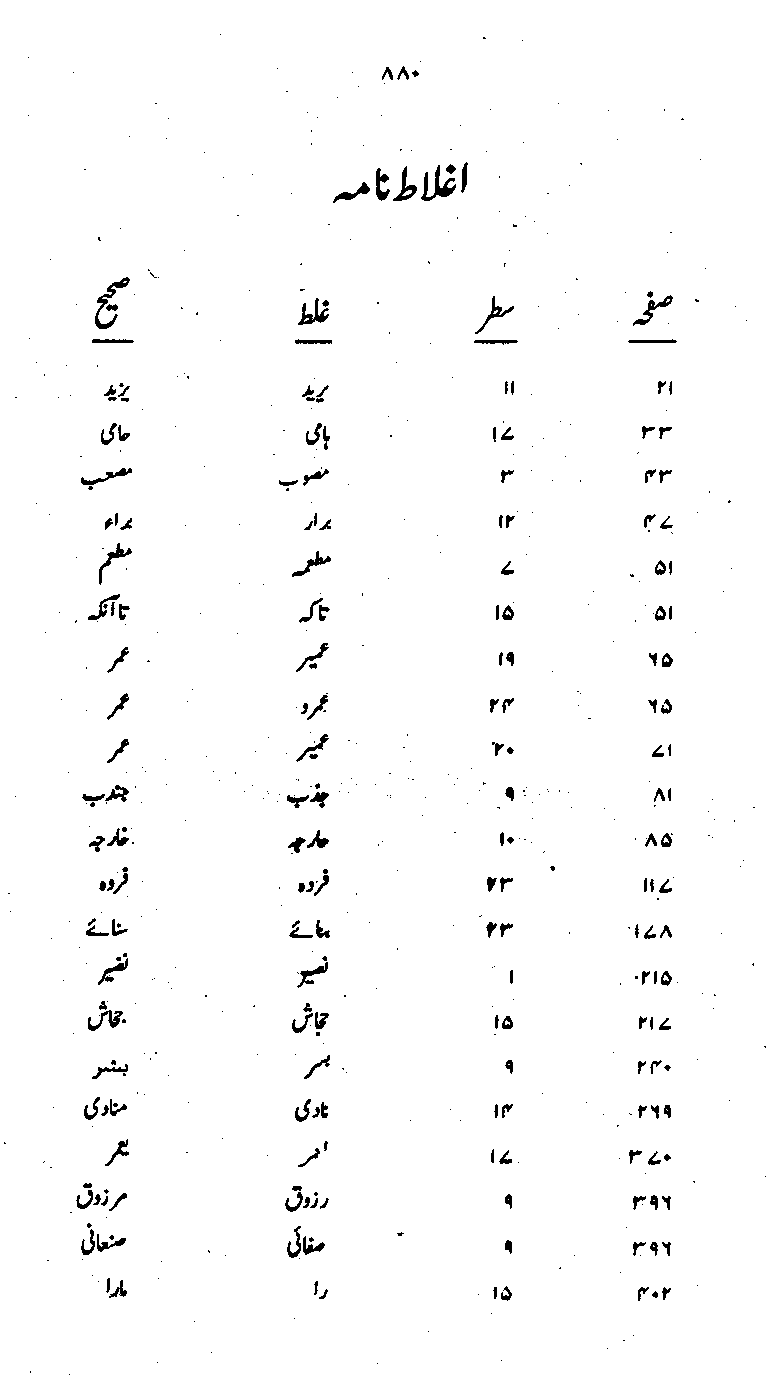 ۸۸۰
اغلاط نامہ
صفحہ سطر غلط صحیح
۲۱ ۱۱ یرید یزید
۳۳ ۱۷ ہامی حامی
۴۳ ۳ مصوب مصعب
۴۷ ۱۲ برار براء
۵۱ ۷ مطعمہ مطعم
۵۱ ۱۵ تاکہ تاآنکہ
۶۵ ۱۹ عمیر عمر
۶۵ ۲۴ عمرو عمر
۷۱ ۲۰ عمیر عمر
۸۱ ۹ جذب جندب
۸۵ ۱۰ حارجہ خارجہ
۱۱۷ ۲۳ فزدہ فروہ
۱۷۸ ۲۳ سنائے
۲۱۵ ۱ نصیر نضیر
۲۱۷ ۱۵ حجاش جحاش
۲۴۰ ۹ بسر بشر
۲۶۹ ۱۴ نادی منادی
۳۷۰ ۱۷ یعمر
۳۹۶ ۹ رزوق مرزوق
۳۹۶ ۹ صفائی صنعانی
۴۰۲ ۱۵ را مارا